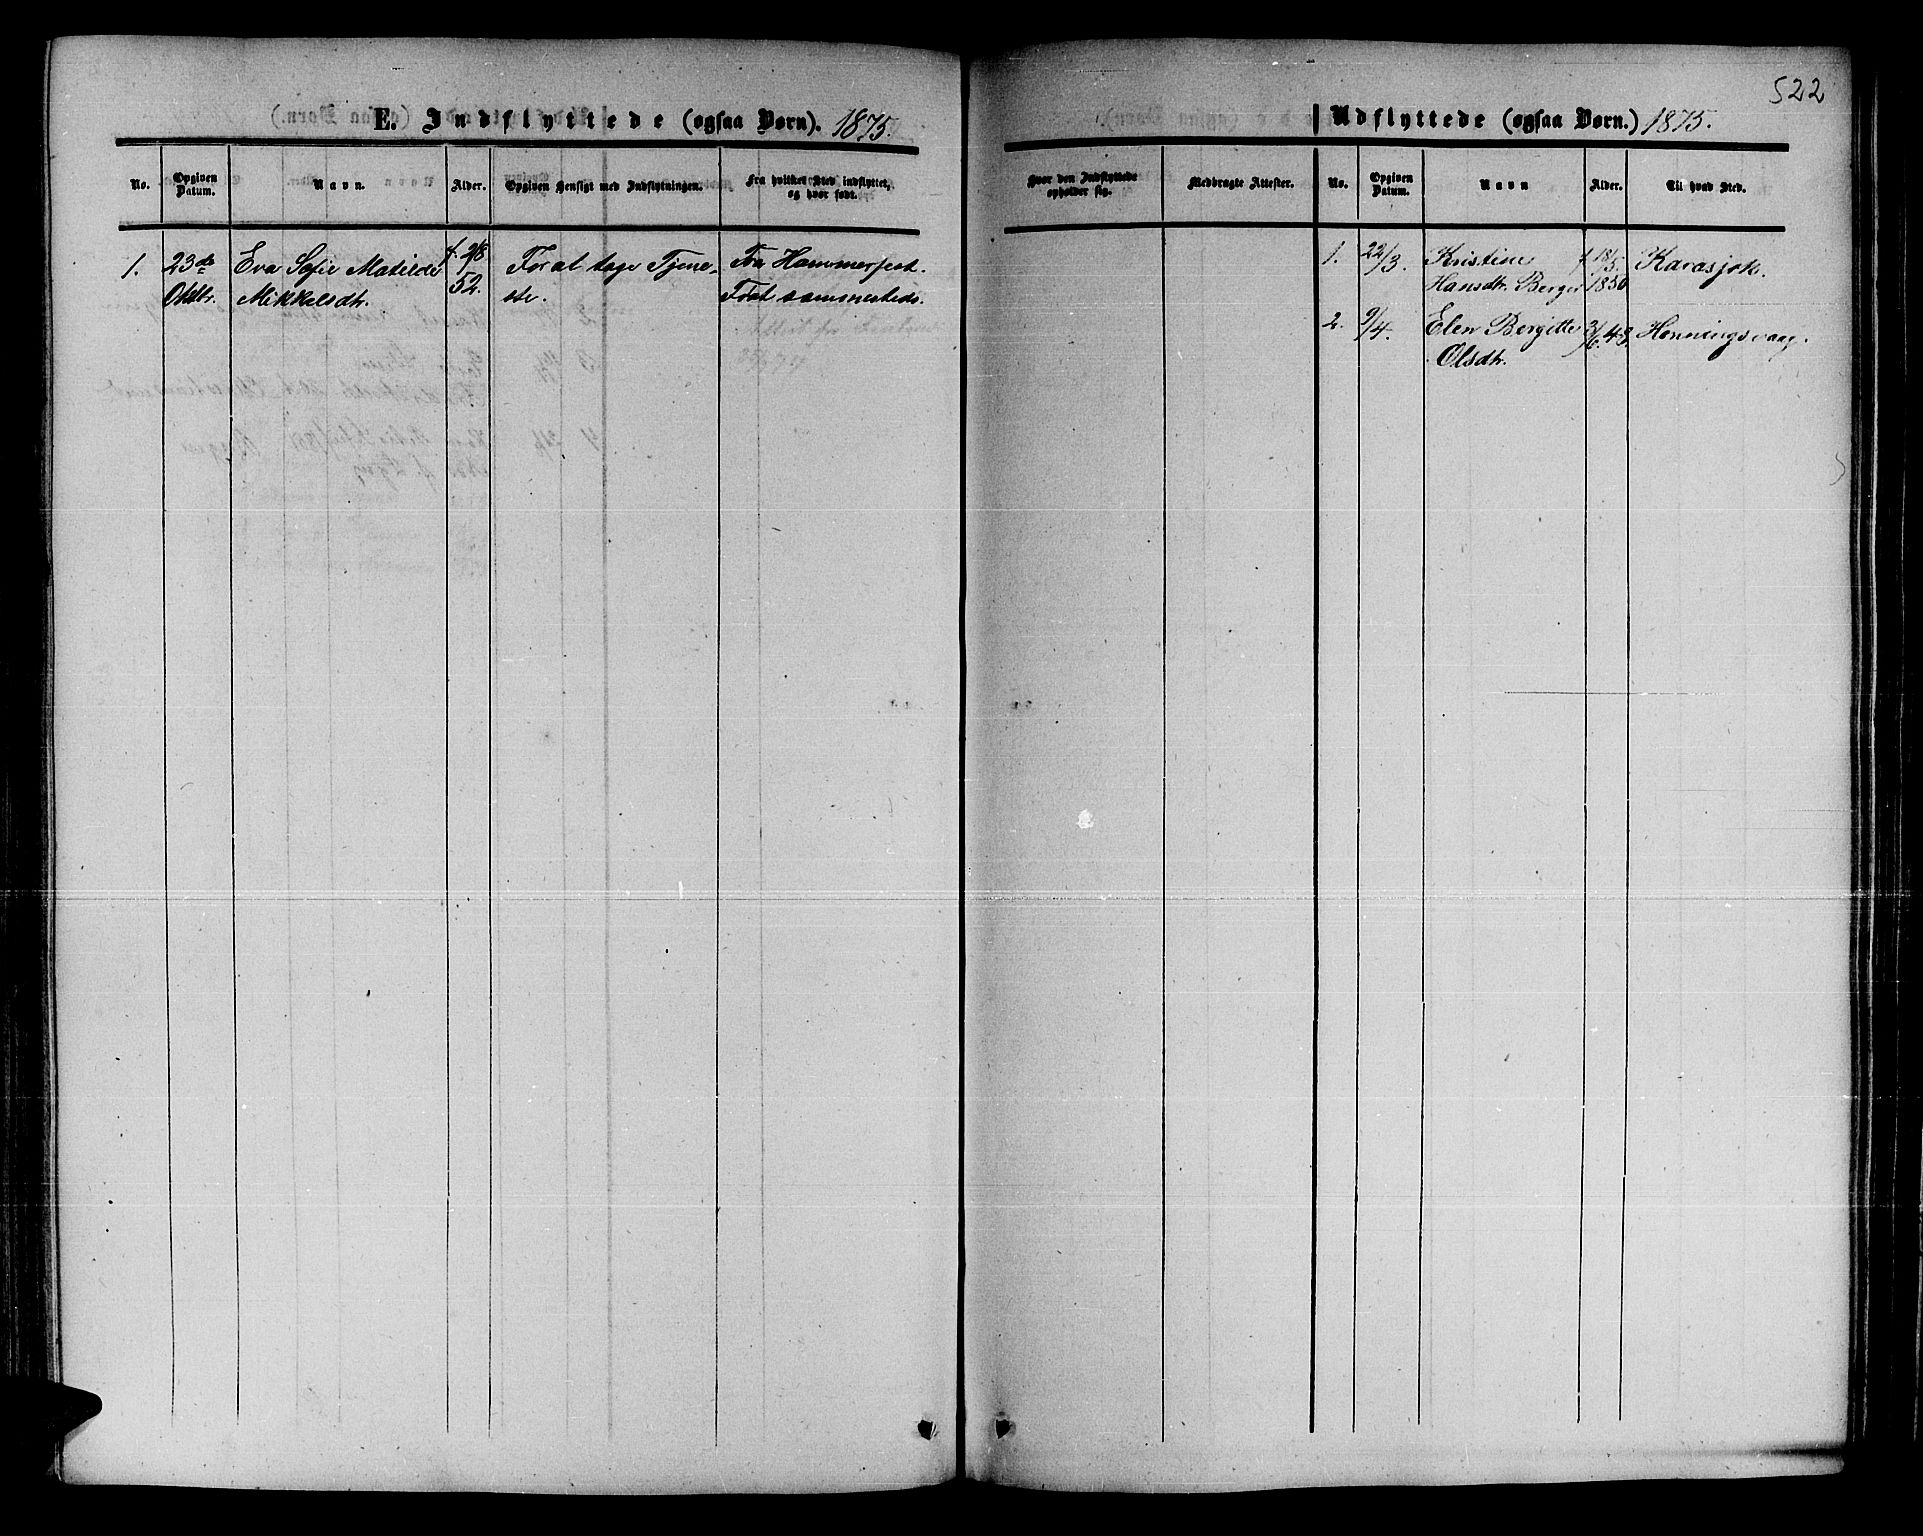 522
E. Indflyttede (ogsaa Børn). 1875.
No.
Opgiven Datum.
Navn.
Alder.
Opgiven Hensigt med Indflytningen.
Fra hvilket Sted indflyttet, og hvor født.
1.
23de Oktbr.
Eva Sofie Matilde
Mikkelsdtr.
f. 2/8
52.
For at tage Tjene-
ste.
Fra Hammerfest.
Født sammesteds.
Hvor den Indflyttede opholder sig.
Medbragte Attester.
Udflyttede (ogsaa Børn.) 1875.
No.
Opgiven Datum.
Navn
Alder.
Til hvad Sted.
1.
22/3.
Kristine
Hansdtr. Berger
f 18/5.
1850
Karasjok.
2.
9/4.
Elen Bergitte
Olsdtr.
3/6 48.
Honningsvaag.